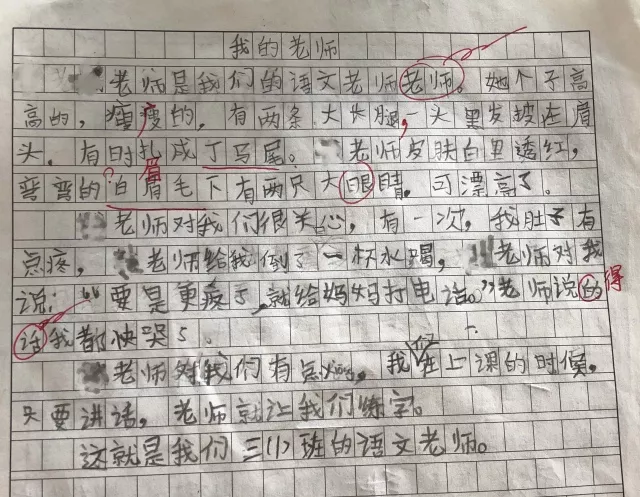 我的老师
老师是我们的语文老师老师。她个子高
高的，瘦瘦的，有两条大长腿，一头黑发披在肩
头，有时扎成丁马尾。老师皮肤白里透红，
弯弯的眉毛下有两只大眼睛，可漂亮了。
老师对我们很关心，有一次，我肚子有
点疼，老师给我倒了一杯水喝，老师对我
说：“要是更疼了，就给妈妈打电话。”老师说的得
话我都快哭了。
老师对我们有点凶，我们在上课的时候，
只要讲话，老师就让我们练字。
这就是我们三(1)班的语文老师。